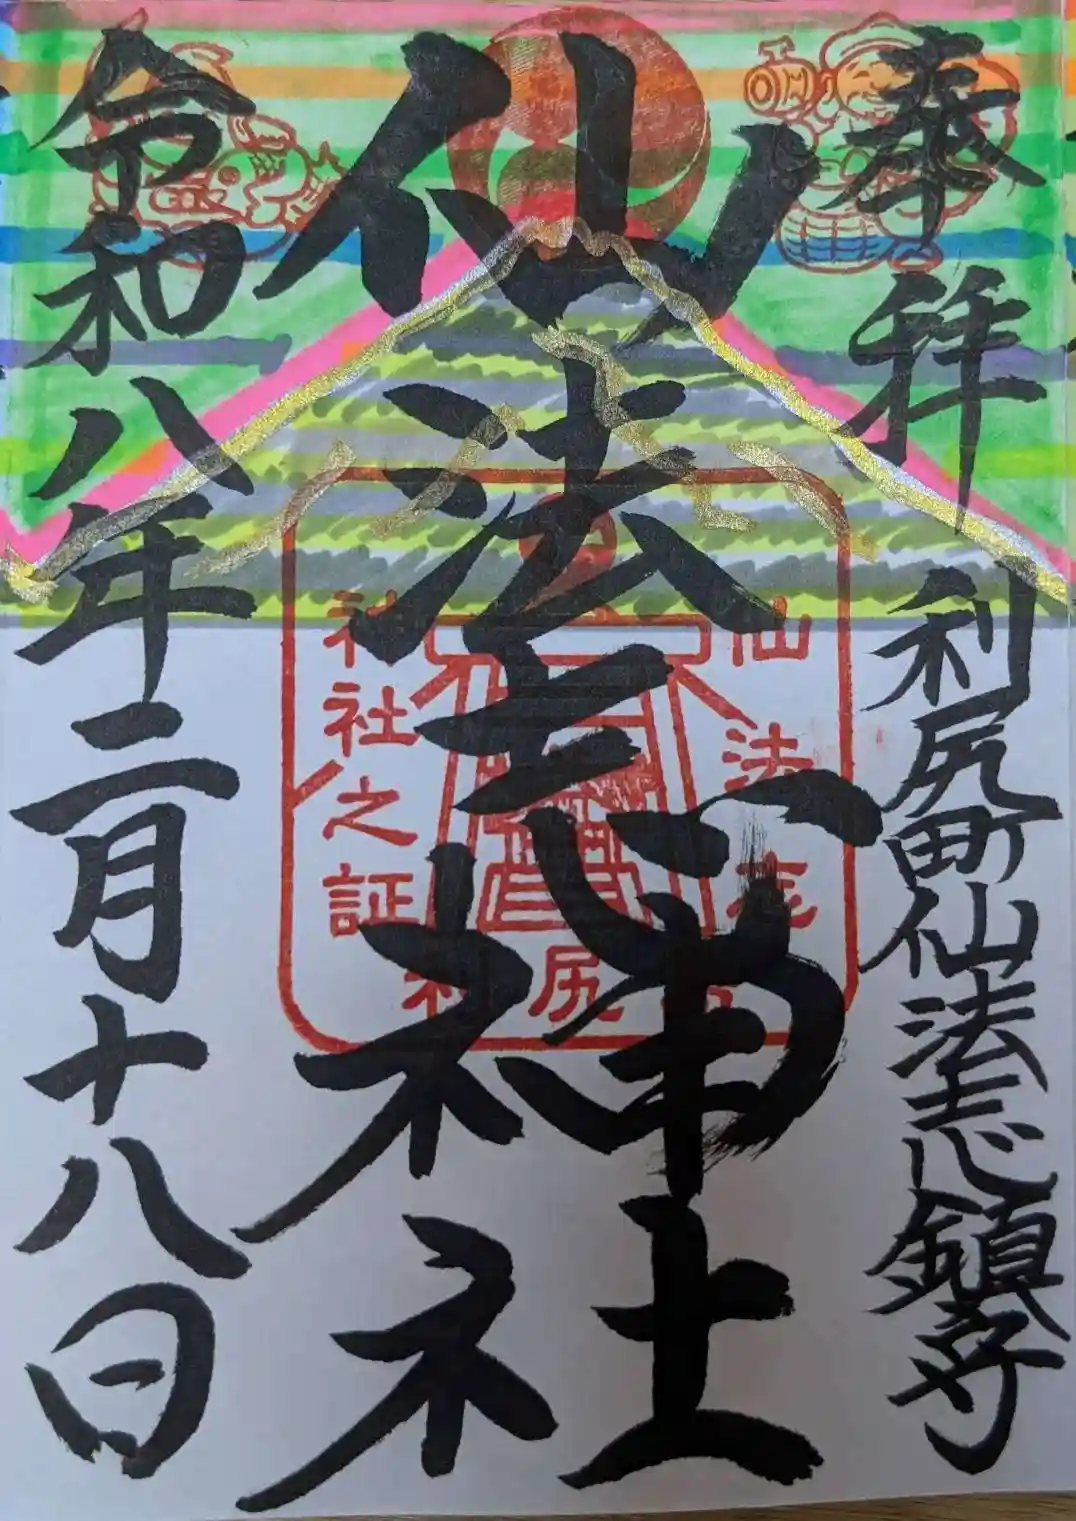 奉拝
利尻町仙法志鎮守
仙法志神社
令和八年二月十八日
仙法志
神社之証
利尻